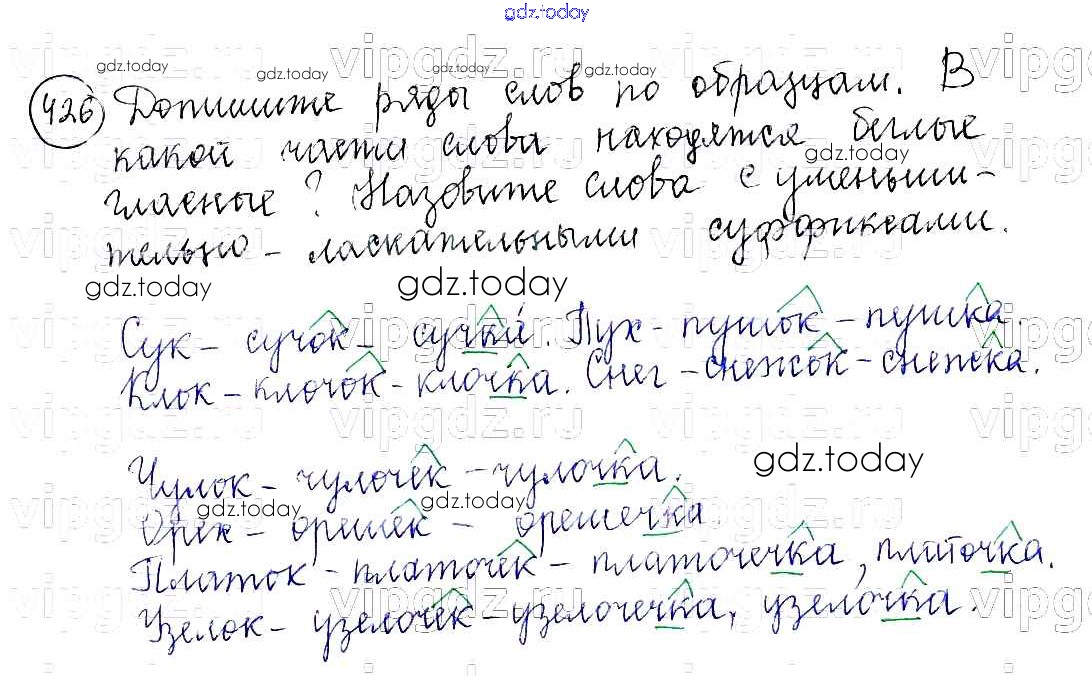 gdz.today
426 Допишите ряды слов по образцам. В
какой части слова находятся беглые
гласные? Назовите слова с уменьши-
тельно-ласкательными суффиксами.
gdz.today gdz.today gdz.today gdz.today
gdz.today
gdz.today gdz.today
Сук – сучок – сучка́. Пух – пушок – пушка.
Клок – клочок – клочка. Снег – снежок – снежка.
gdz.today
Чулок – чулочек – чулочка.
gdz.today gdz.today
Орех – орешек – орешечка.
Платок – платочек – платочечка, платочка.
Узелок – узелочек – узелочечка, узелочка.
vipgdz.ru vipgdz.ru vipgdz.ru